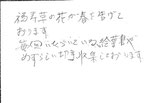 福寿草の花が春を告げて
おります
毎回いただいている絵葉書や
めずらしい切手収集しております